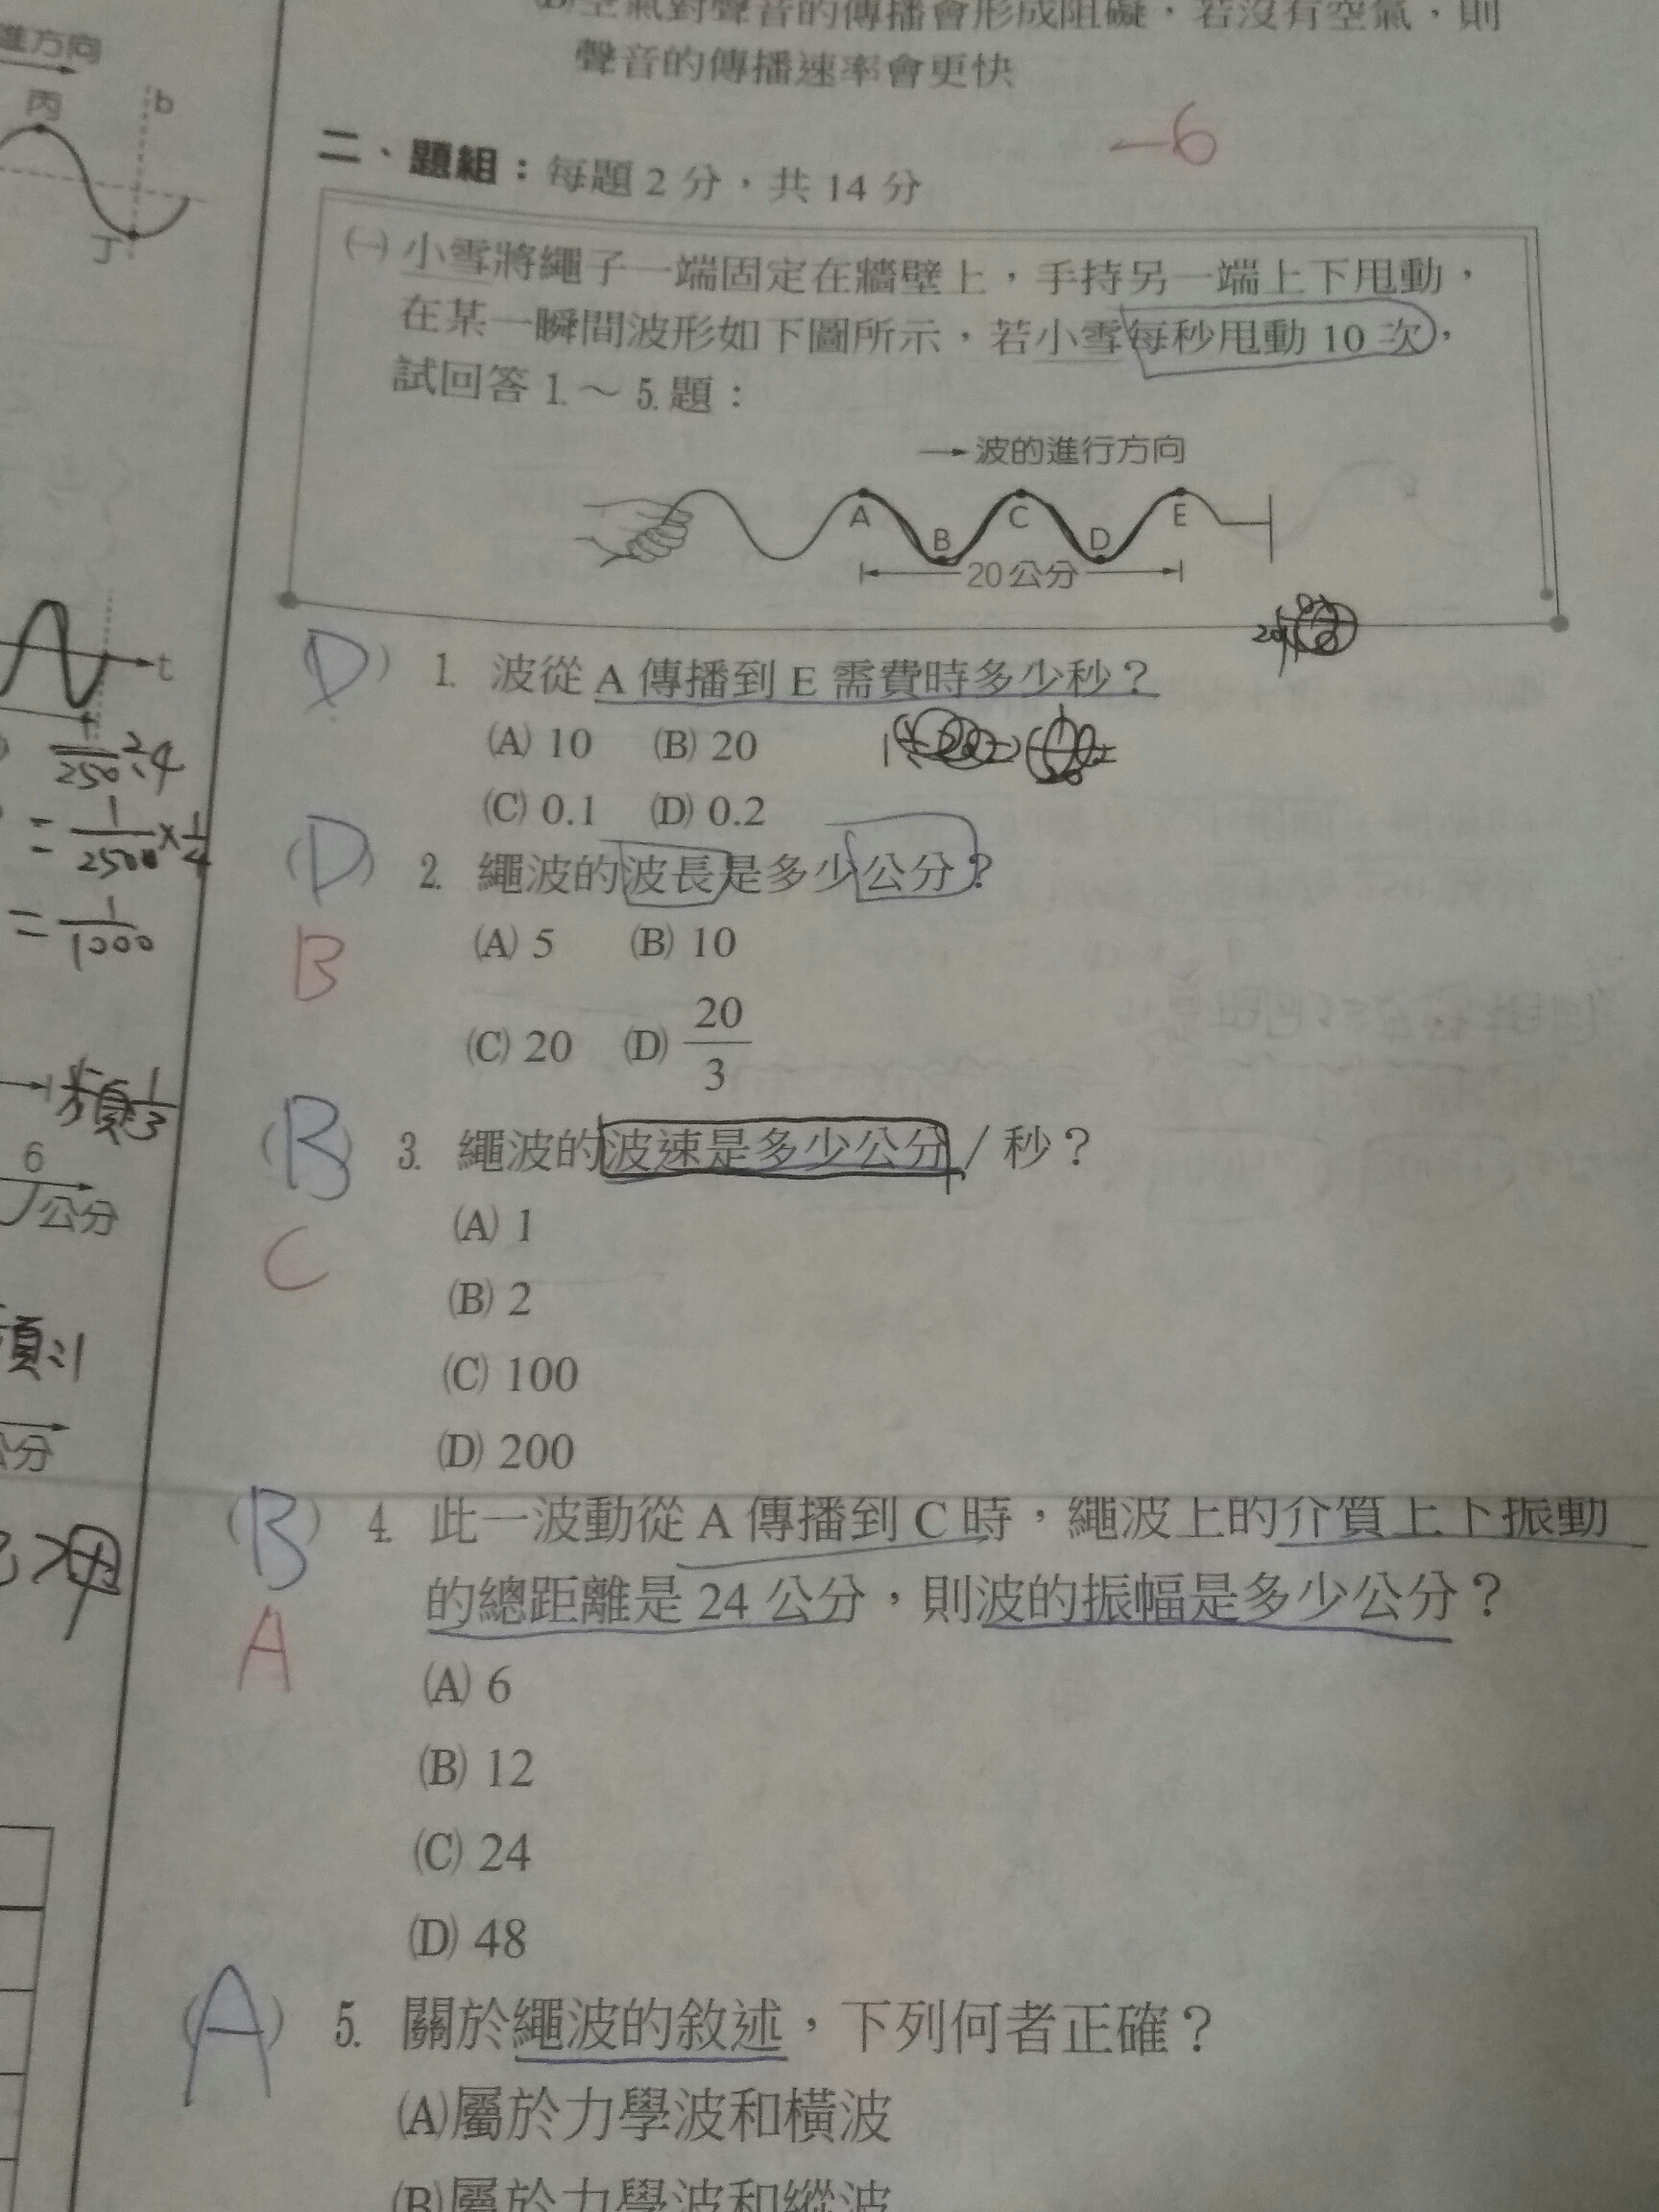 進方向
丙
b
丁
t
1/250÷4
= 1/250 × 1/4
= 1/1000
頻 1/3
6
公分
頻:1
公分
空氣對聲音的傳播會形成阻礙，若沒有空氣，則
聲音的傳播速率會更快
-6
二、題組：每題 2 分，共 14 分
㈠ 小雪將繩子一端固定在牆壁上，手持另一端上下甩動，
在某一瞬間波形如下圖所示，若小雪每秒甩動 10 次，
試回答 1.～ 5. 題：
→波的進行方向
A B C D E
20 公分
(D) 1. 波從 A 傳播到 E 需費時多少秒？
(A) 10 (B) 20
(C) 0.1 (D) 0.2
(D) 2. 繩波的波長是多少公分？
B
(A) 5 (B) 10
(C) 20 (D) 20/3
(B) 3. 繩波的波速是多少公分／秒？
C
(A) 1
(B) 2
(C) 100
(D) 200
(B) 4. 此一波動從 A 傳播到 C 時，繩波上的介質上下振動
的總距離是 24 公分，則波的振幅是多少公分？
A
(A) 6
(B) 12
(C) 24
(D) 48
(A) 5. 關於繩波的敘述，下列何者正確？
(A)屬於力學波和橫波
(B)屬於力學波和縱波